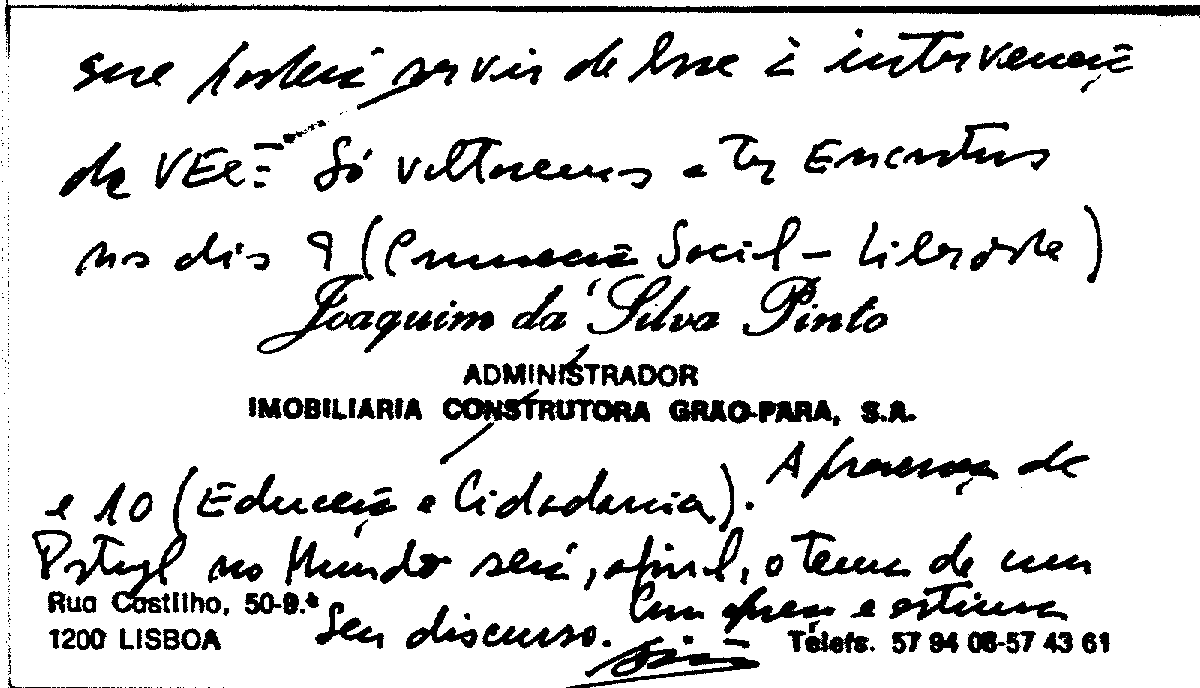 que poderá servir de base à intervenção
de VExª. Só voltaremos a ter Encontros
nos dias 9 (Promoção Social - Liberdade)
Joaquim da Silva Pinto
ADMINISTRADOR
IMOBILIARIA CONSTRUTORA GRAO-PARA, S.A.
e 10 (Educação e Cidadania). A presença de
Portugal no Mundo será, afinal, o tema de um
Rua Castilho, 50-9.º
seu discurso. Com apreço e estima
1200 LISBOA
Telefs. 57 94 08-57 43 61